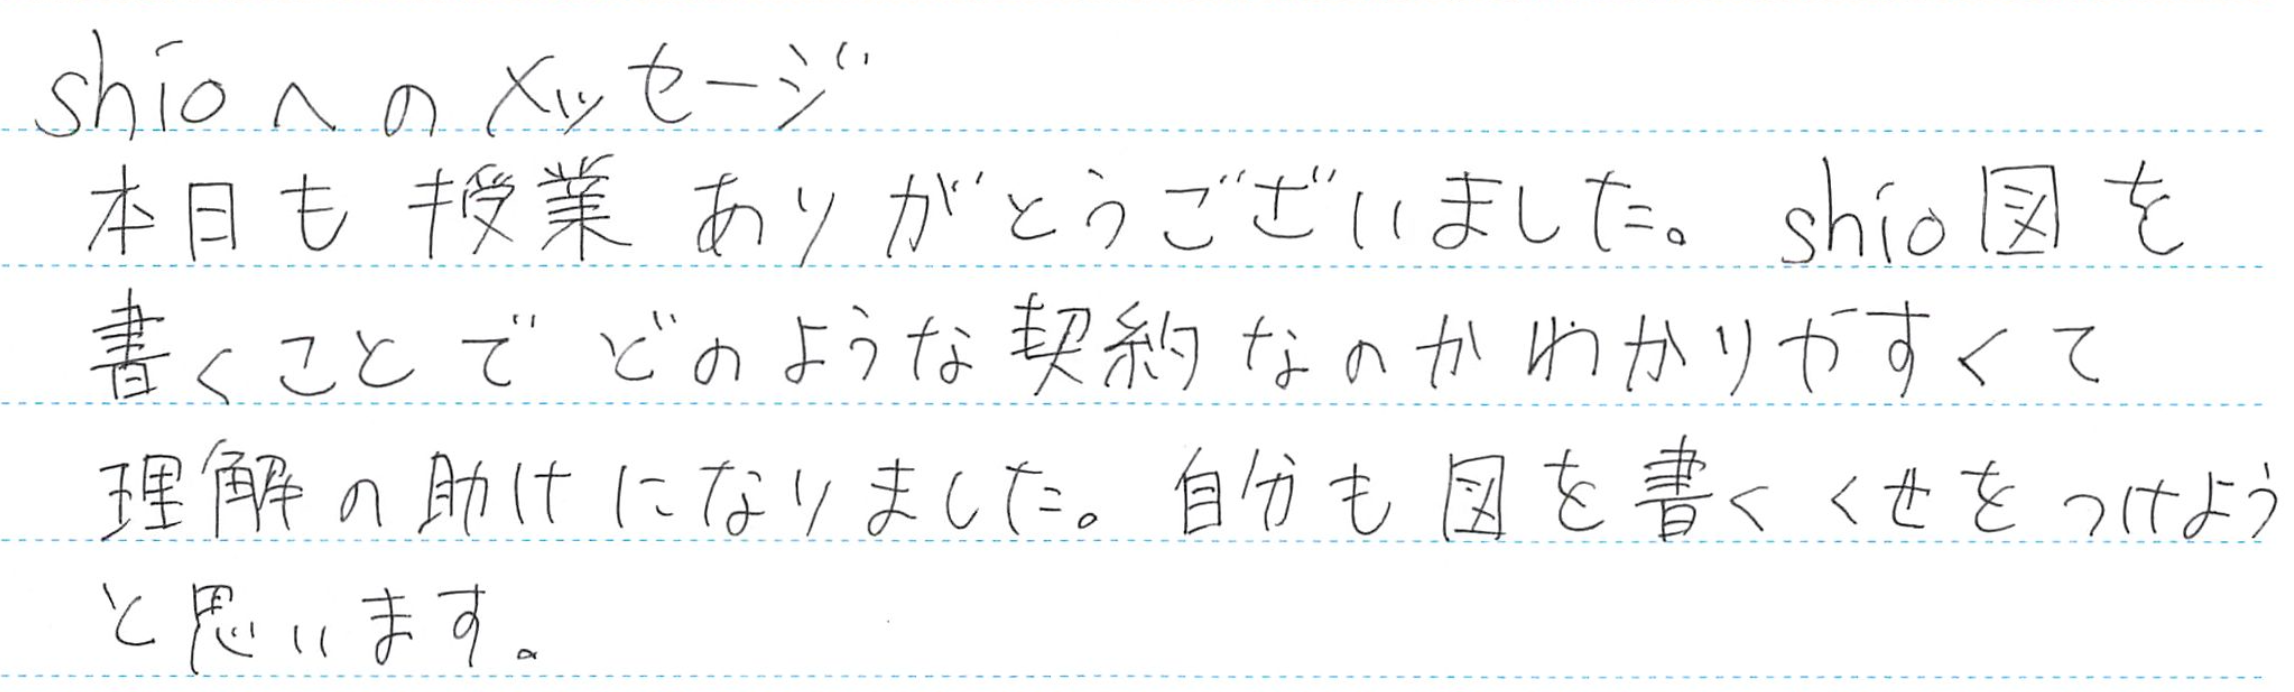 shioへのメッセージ
本日も授業ありがとうございました。shio図を
書くことでどのような契約なのかわかりやすくて
理解の助けになりました。自分も図を書くくせをつけよう
と思います。